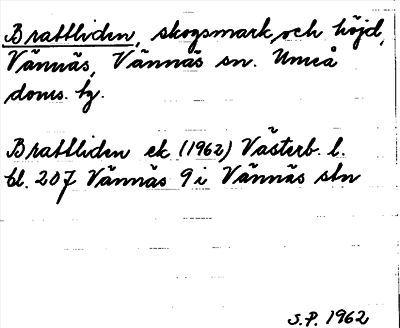 Brattliden, skogsmark och höjd,
Vännäs, Vännäs sn. Umeå
doms. hg.
Brattliden ek (1962) Västerb. l.
bl. 207 Vännäs 9 i Vännäs stn
S.P. 1962